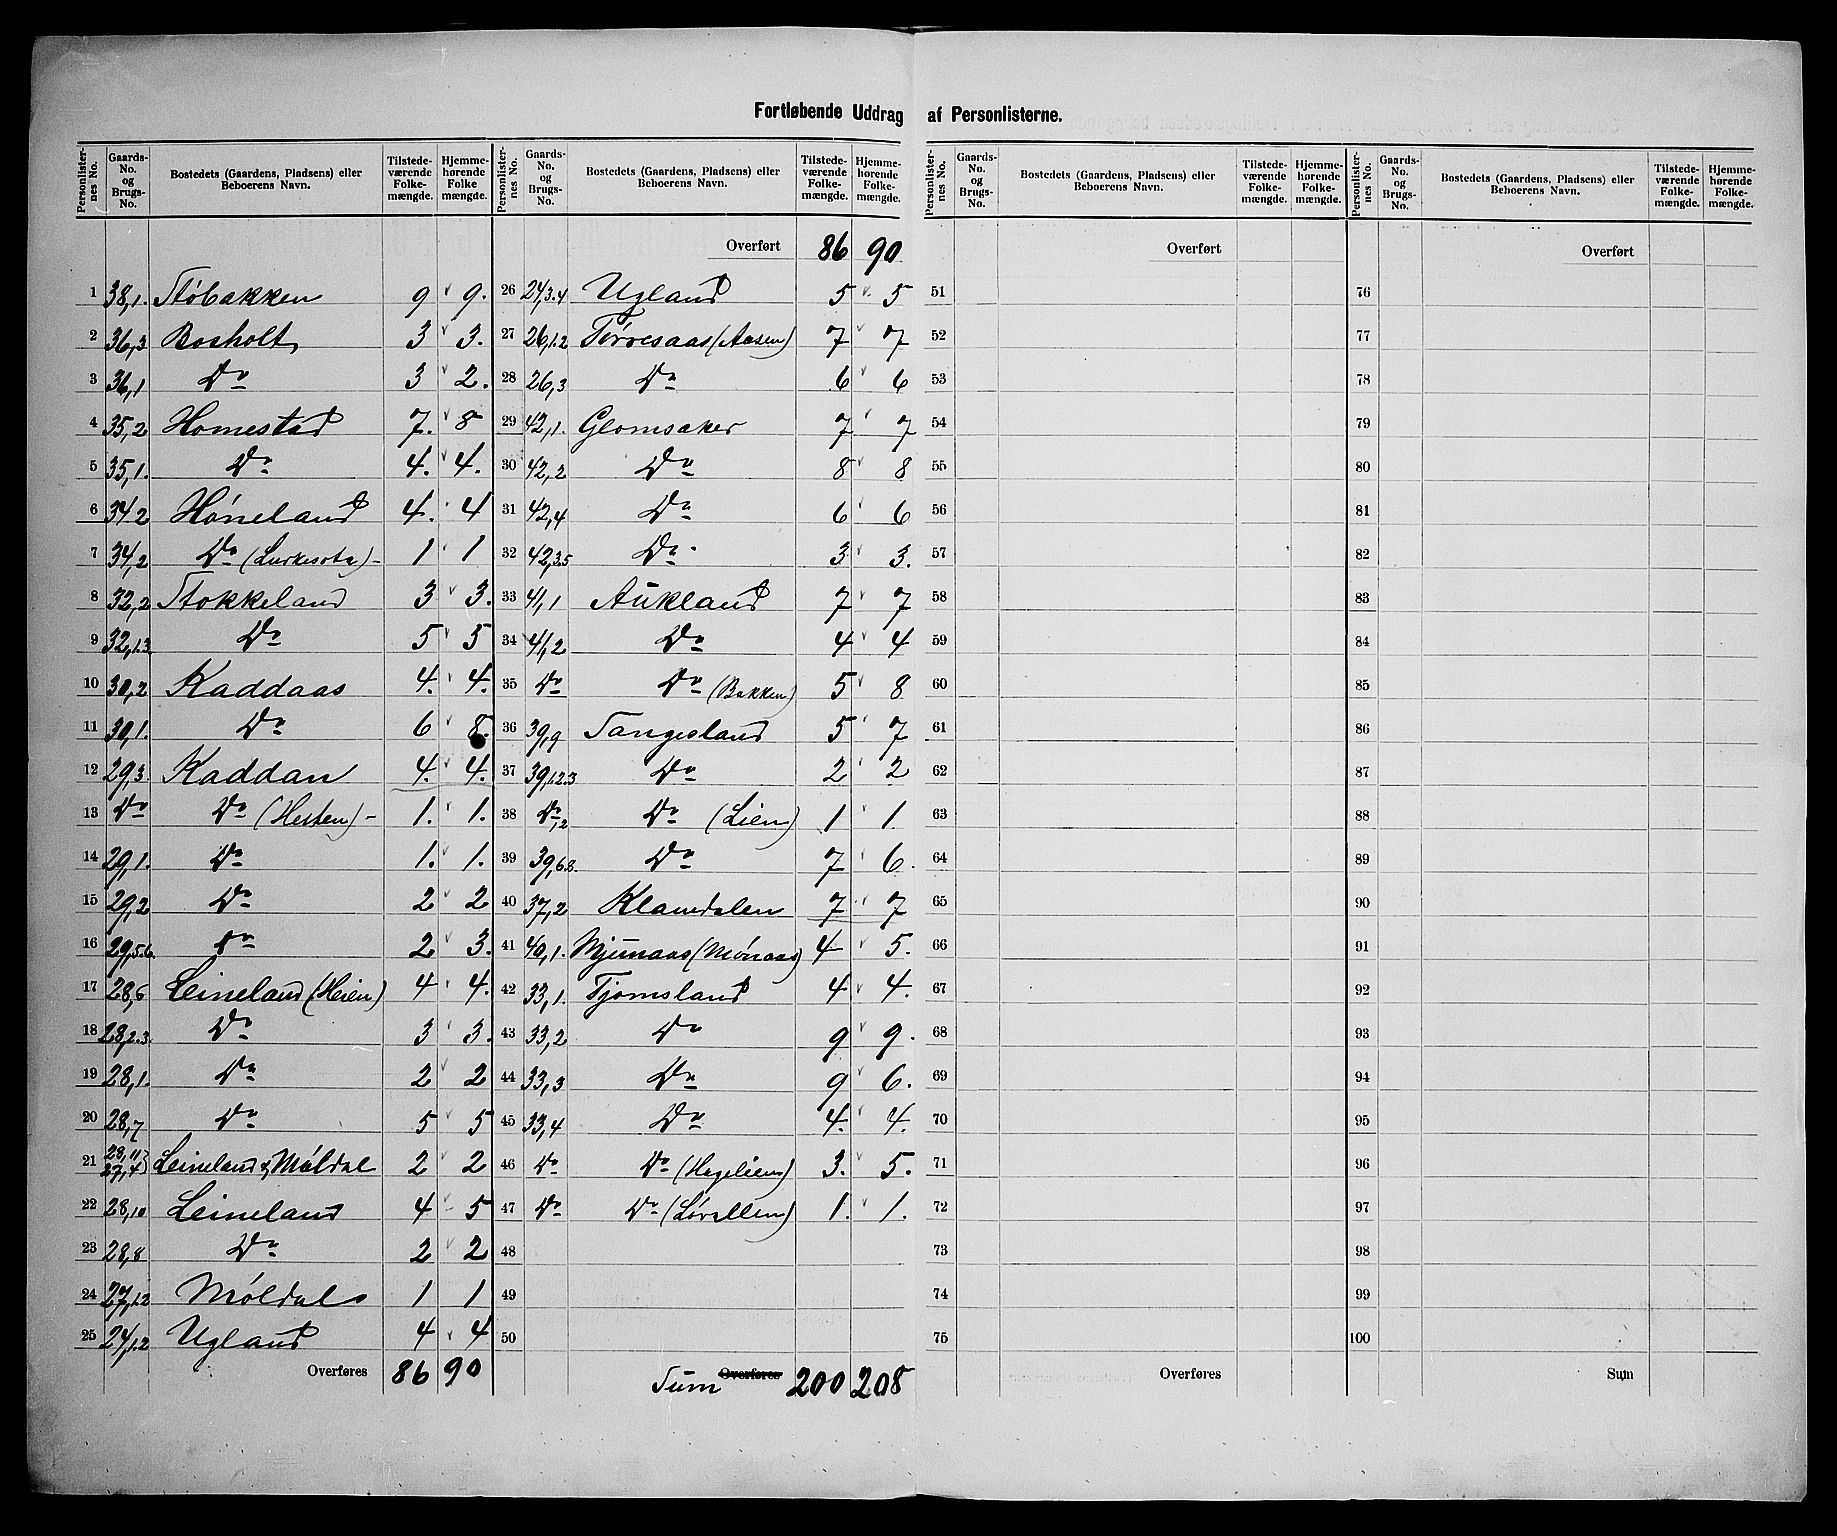 Fortløbende Uddrag af Personlisterne.
Personlister-nes No. | Gaards-No. og Brugs-No. | Bostedets (Gaardens, Pladsens) eller Beboerens Navn. | Tilstede-værende Folke-mængde. | Hjemme-hørende Folke-mængde.
1 38,1. Støbakken 9 9.
2 36,3 Bosholt 3 3.
3 36,1 Do 3 2.
4 35,2 Homestad 7. 8
5 35,1. Do 4. 4.
6 34,2 Høneland 4. 4
7 34,2 Do 1 1
8 32,2 Stokkeland 3 3.
9 32,1.3 Do 5 5
10 30,2 Kaddaas 4. 4.
11 30,1. Do 6 8.
12 29,3. Kaddan 4. 4.
13 Do Do (Hesten) - 1. 1.
14 29,1. Do 1. 1.
15 29,2 Do 2 2
16 29,5.6. Do 2 3.
17 28,6 Leineland (Heien) 4 4.
18 28,2.3. Do 3 3.
19 28,1. Do 2 2
20 28,7 Do 5 5
21 28,11 27,4 Leineland & Møldal 2 2
22 28,10 Leineland 4 5
23 28,8 Do 2 2
24 27,1.2 Møldal 1 1
25 24,1.2 Ugland 4 4
Overføres 86 90
Personlister-nes No. | Gaards-No. og Brugs-No. | Bostedets (Gaardens, Pladsens) eller Beboerens Navn. | Tilstede-værende Folke-mængde. | Hjemme-hørende Folke-mængde.
Overført 86 90
26 24,3.4 Ugland 5 5
27 26,1.2 Tørresaas (Aasen) 7 7
28 26,3 Do 6 6
29 42,1. Glomsaker 7 7
30 42,2 Do 8 8
31 42,4 Do 6 6
32 42,3.5 Do 3 3.
33 41,1 Aukland 7 7
34 41,2 Do 4 4
35 Do Do (Bakken) 5 8
36 39,9 Tangesland 5 7
37 39,1.2.3 Do 2 2
38 Do,2 Do (Lien) 1 1.
39 39,6.8. Do 7 6.
40 37,2 Klamdalen 7 7
41 40,1. Mjunaas (Mønaas) 4 5.
42 33,1. Tjomsland 4 4.
43 33,2 Do 9 9.
44 33,3 Do 9 6.
45 33,4 Do 4. 4.
46 Do Do (Hagelien) 3. 5.
47 Do Do (Løvallen) 1. 1.
48
49
50
Sum Overføres 200 208
Personlister-nes No. | Gaards-No. og Brugs-No. | Bostedets (Gaardens, Pladsens) eller Beboerens Navn. | Tilstede-værende Folke-mængde. | Hjemme-hørende Folke-mængde.
Overført
51
52
53
54
55
56
57
58
59
60
61
62
63
64
65
66
67
68
69
70
71
72
73
74
75
Overføres
Personlister-nes No. | Gaards-No. og Brugs-No. | Bostedets (Gaardens, Pladsens) eller Beboerens Navn. | Tilstede-værende Folke-mængde. | Hjemme-hørende Folke-mængde.
Overført
76
77
78
79
80
81
82
83
84
85
86
87
88
89
90
91
92
93
94
95
96
97
98
99
100
Sum